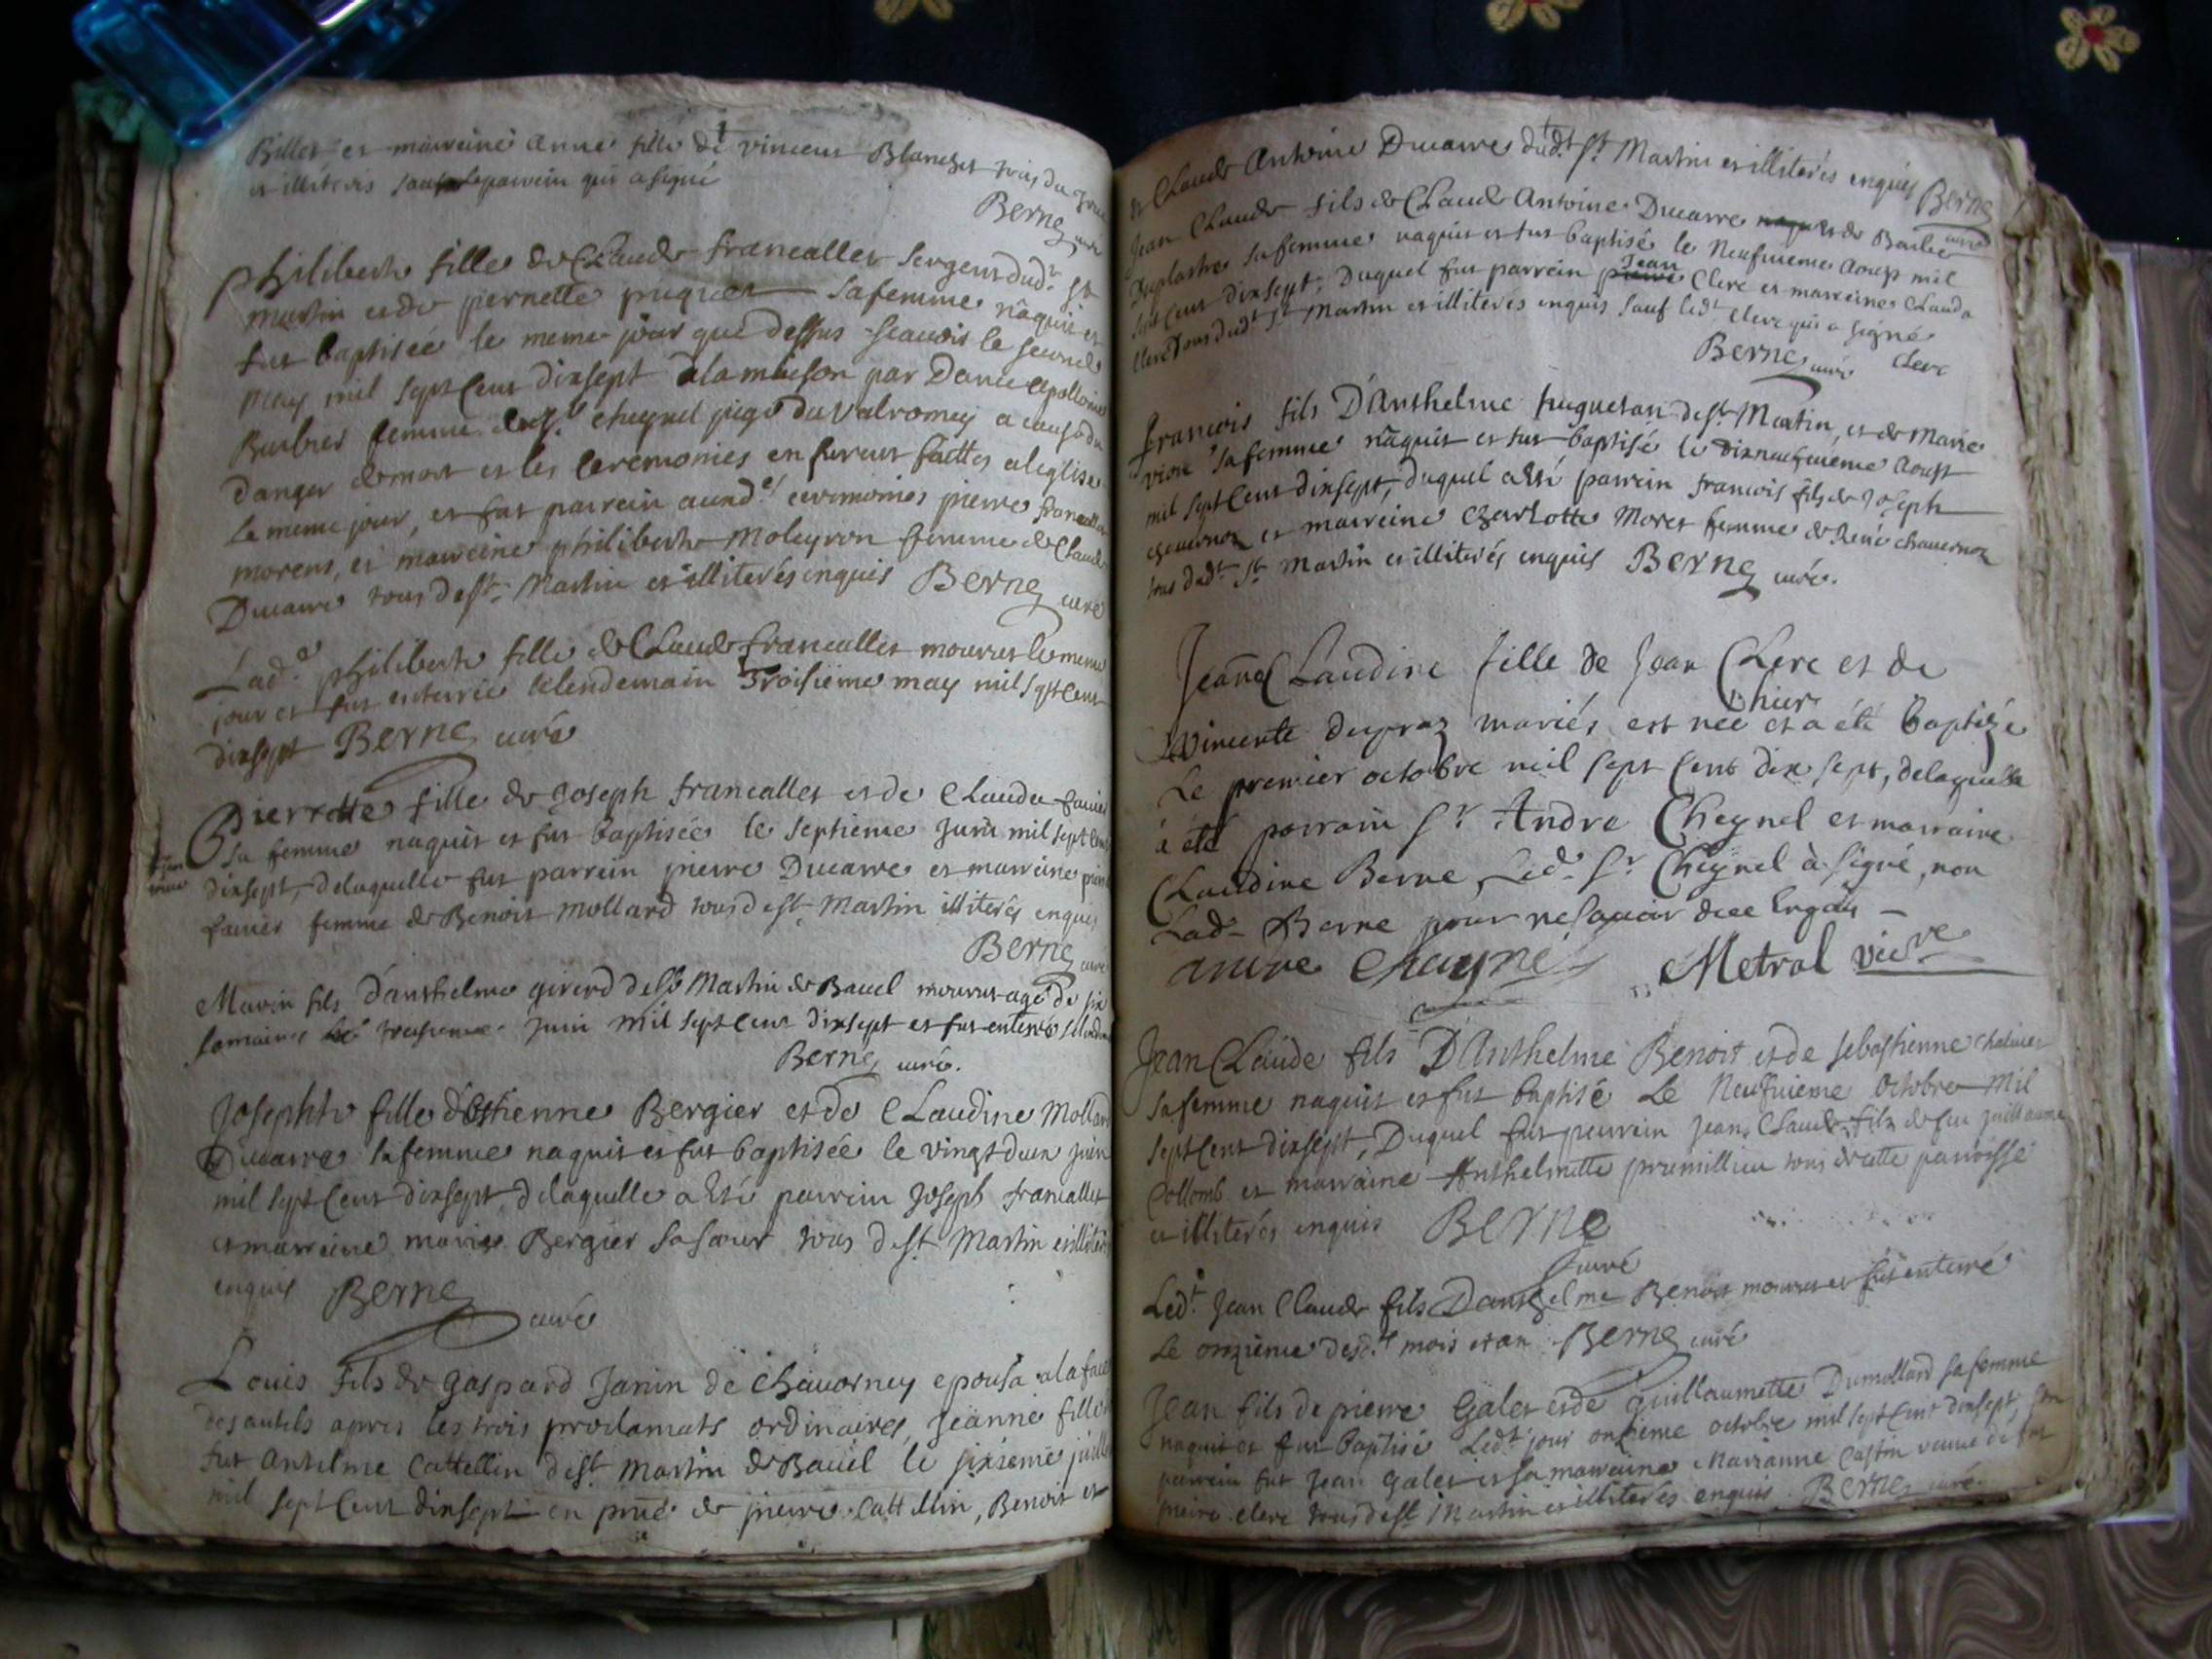 Billet et marreine Anne fille de vincent Blanchet tous du
et illiterés sauf le parrein qui a signé
Berne curé
Philiberte fille de Claude francallet sergent dud.t St
Martin et de pernette puguet sa femme nâquit et
fut baptisée le meme jour que dessus scauoir le second
may mil sept cent dixsept a la maison par Dame apolloine
Barbier femme du Sr cheynel juge du valromey a cause du
danger de mort et les ceremonies en furent faittes a leglise
le meme jour, et fut parrein auxd.es ceremonies pierre francallet
morens, et marreine philiberte Moleyron femme de Claude
Ducarre tous de St Martin et illiterés enquis Berne curé
Lad.e philiberte fille de Claude francallet mourut le meme
jour et fut enterrée le lendemain Troisieme may mil sept cent
dixsept Berne curé
Pierrette fille de Joseph francallet et de Clauda favier
sa femme naquit et fut baptisée le septieme Juin mil sept cent
dixsept, de laquelle fut parrein pierre Ducarre et marreine
favier femme de Benoit Mollard tous de St Martin illiterés enquis
Berne curé
Marin fils d'anthelme girerd de St Martin de Bavel mourut agé de six
semaines le treisieme Juin mil sept cent dixsept et fut enterré
Berne curé.
Josephte fille d'Estienne Bergier et de Claudine Mollard
Ducarre sa femme naquit et fut baptisée le vingt deux juin
mil sept cent dixsept, de laquelle a esté parrein Joseph francallet
et marreine marie Bergier sa sœur tous de St Martin et illiterés
enquis Berne curé
Louis fils de gaspard Janin de chavorney epousa a la face
des autels apres les trois proclamats ordinaires, Jeanne fille
fut Antelme Cattellin de St Martin de Bavel le sixieme juillet
mil sept cent dixsept en pnce de pierre Cattellin, Benoit et
de Claude Antoine Ducarre dud.t St Martin et illiterés enquis Berne curé
Jean Claude fils de Claude Antoine Ducarre et de Barbe
Duplastre sa femme naquit et fut baptisé le Neufuieme Aoust mil
sept cent dixsept; Duquel fut parrein Jean Clerc et marreine Clauda
Clerc tous dud.t St Martin et illiterés enquis sauf led.t clerc qui a signé
Berne curé Clerc
francois fils D'Anthelme huguetan de St Martin, et de Marie
sa femme nâquit et fut baptisé le dixneufuieme Aoust
mil sept cent dixsept, duquel a esté parrein francois fils de Joseph
chavernoz et marreine Charlotte Moret femme de René chavernoz
tous dud.t St Martin et illiterés enquis Berne curé.
Jeanne Claudine fille de Jean Clerc et de
hier
Vincente dupraz mariés est neé et a été baptizée
Le premier octobre mil sept cent dix sept, de laquelle
à eté parrain Sr Andre Cheynel et marraine
Claudine Berne, Led. Sr Cheynel à signé, non
Lad. Berne pour ne sauoir de ce enquis
andre Chaynel Metral vic.re
Jean Claude fils D'Anthelme Benoit et de sebastienne
sa femme naquit et fut baptisé Le Neufuieme Octobre Mil
sept cent dixsept, Duquel fut parrein Jean Claude fils de feu juillaume
Collomb et marraine Anthelmette premillieu tous de cette parroisse
et illiterés enquis Berne
curé
Led.t Jean Claude fils Danthelme Benoit mourut et fut enterré
Le onzieme desd.t mois et an Berne curé
Jean fils de pierre Galet et de Guillaumette Dumollard sa femme
naquit et fut baptisé Led.t jour onzieme octobre mil sept cent dixsept, son
parrein fut Jean Galet et sa marreine Marianne Castin veuve de fut
pierre clerc tous de St Martin et illiterés enquis Berne curé